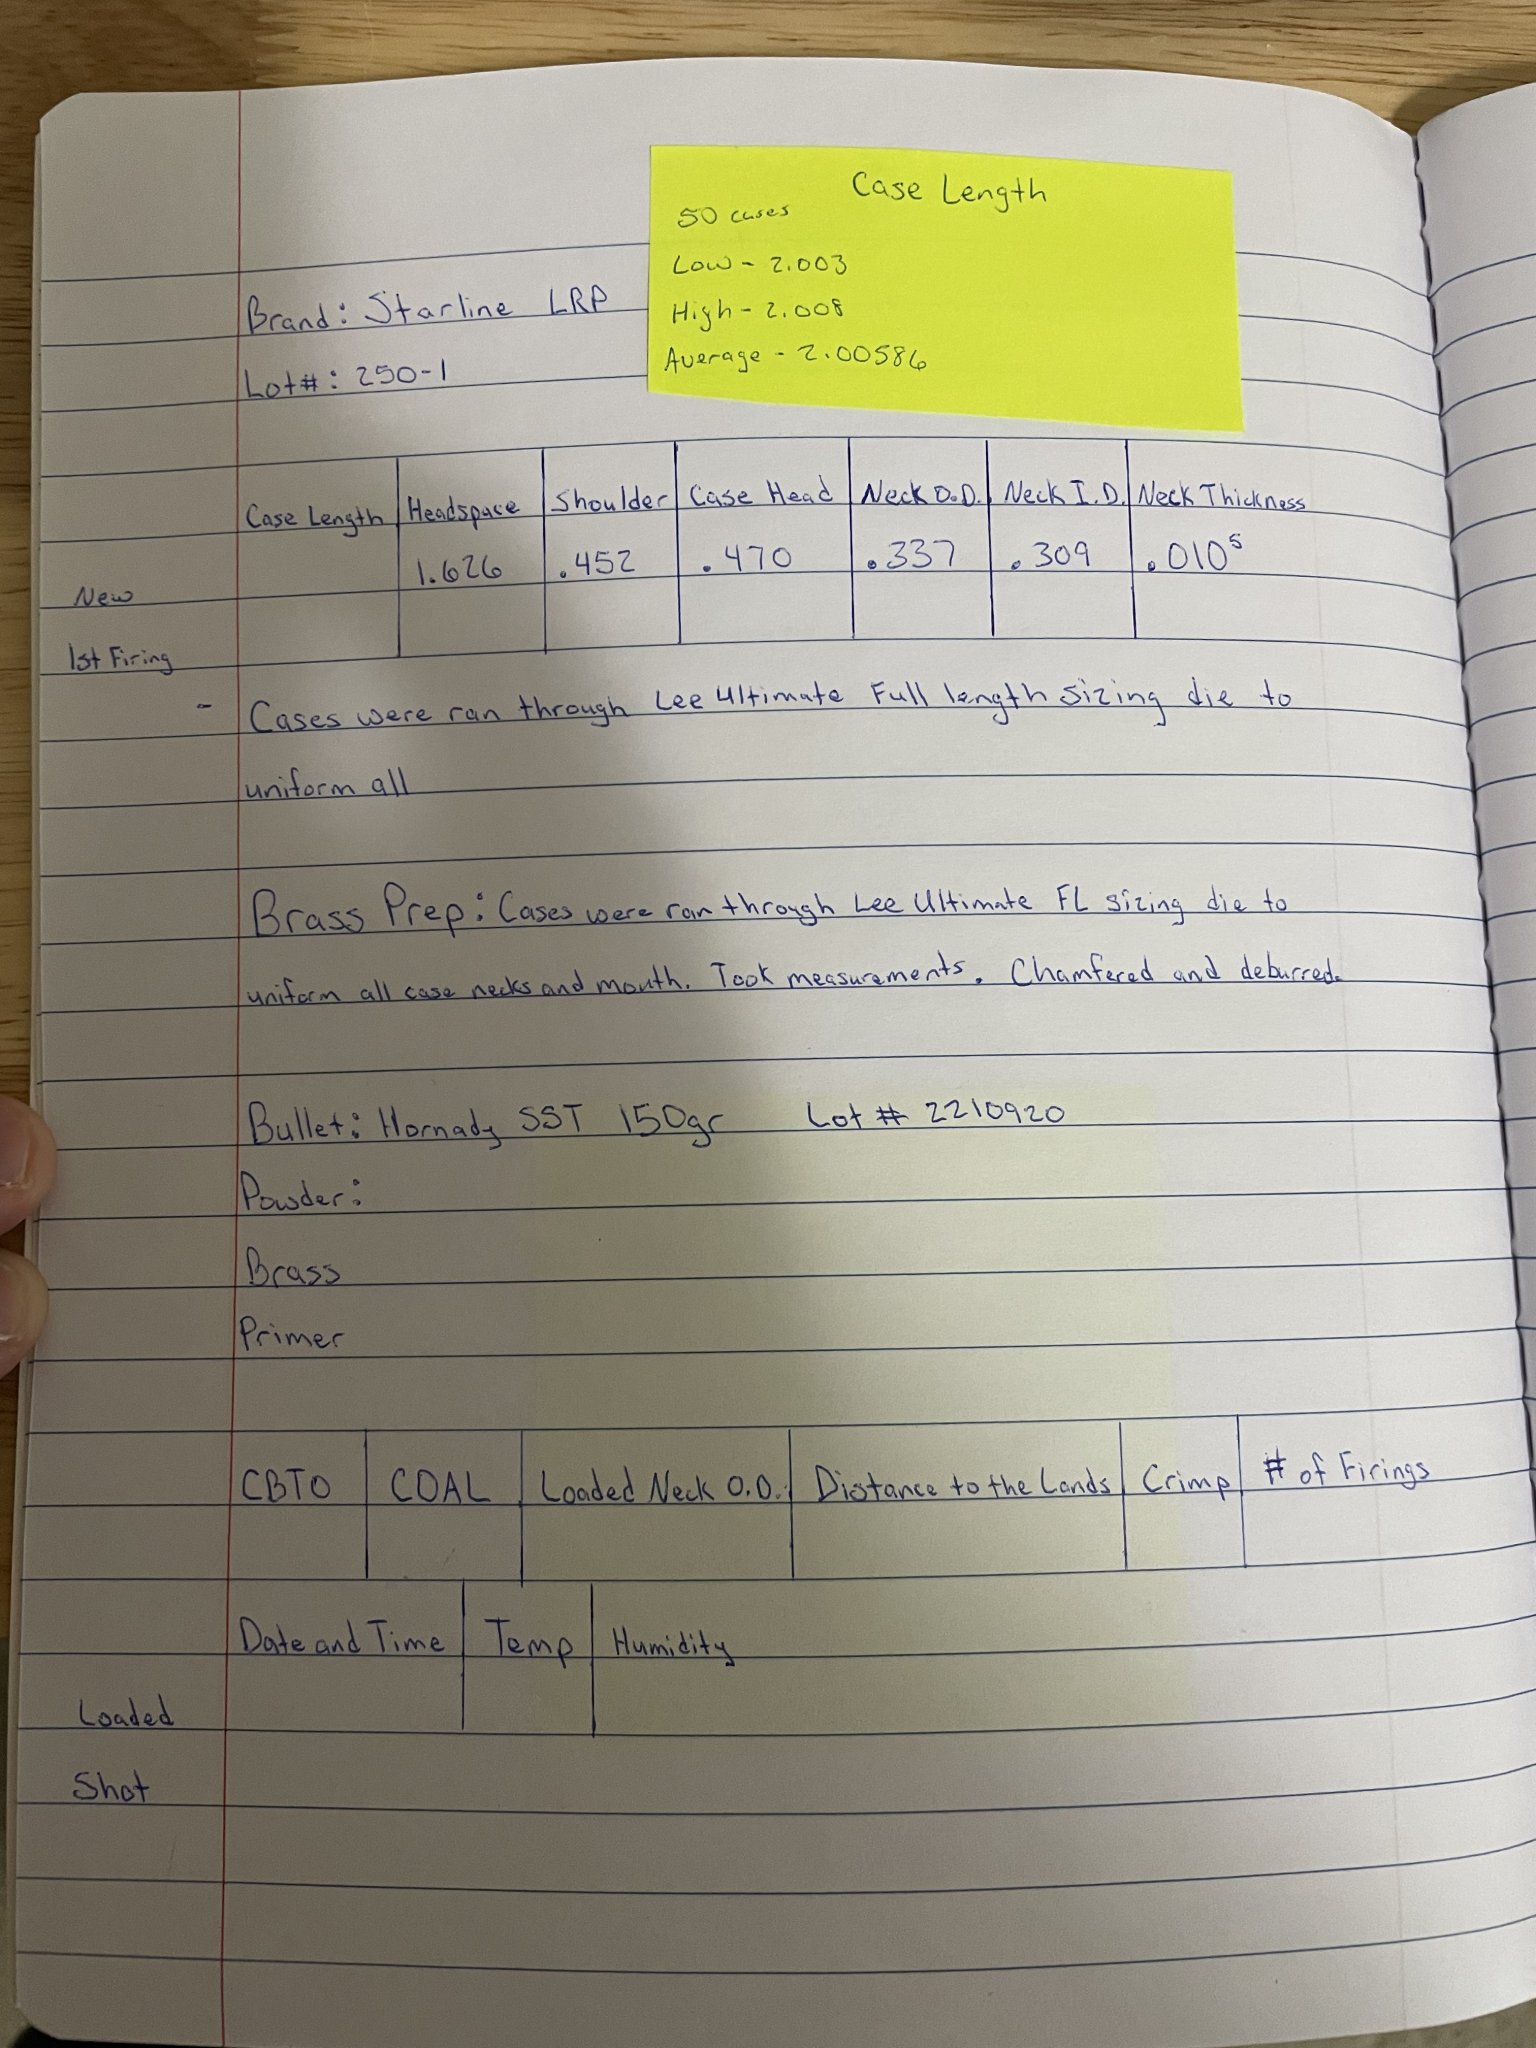 Case Length
50 cases
Low - 2.003
High - 2.008
Average - 2.00586
Brand: Starline LRP
Lot#: 250-1
Case Length Headspace Shoulder Case Head Neck O.D. Neck I.D. Neck Thickness
New 1.626 .452 .470 .337 .309 .010⁵
1st Firing
- Cases were ran through Lee Ultimate Full length sizing die to
uniform all
Brass Prep: Cases were ran through Lee Ultimate FL sizing die to
uniform all case necks and mouth. Took measurements. Chamfered and deburred.
Bullet: Hornady SST 150gr Lot # 2210920
Powder:
Brass
Primer
CBTO COAL Loaded Neck O.D. Distance to the Lands Crimp # of Firings
Date and Time Temp Humidity
Loaded
Shot